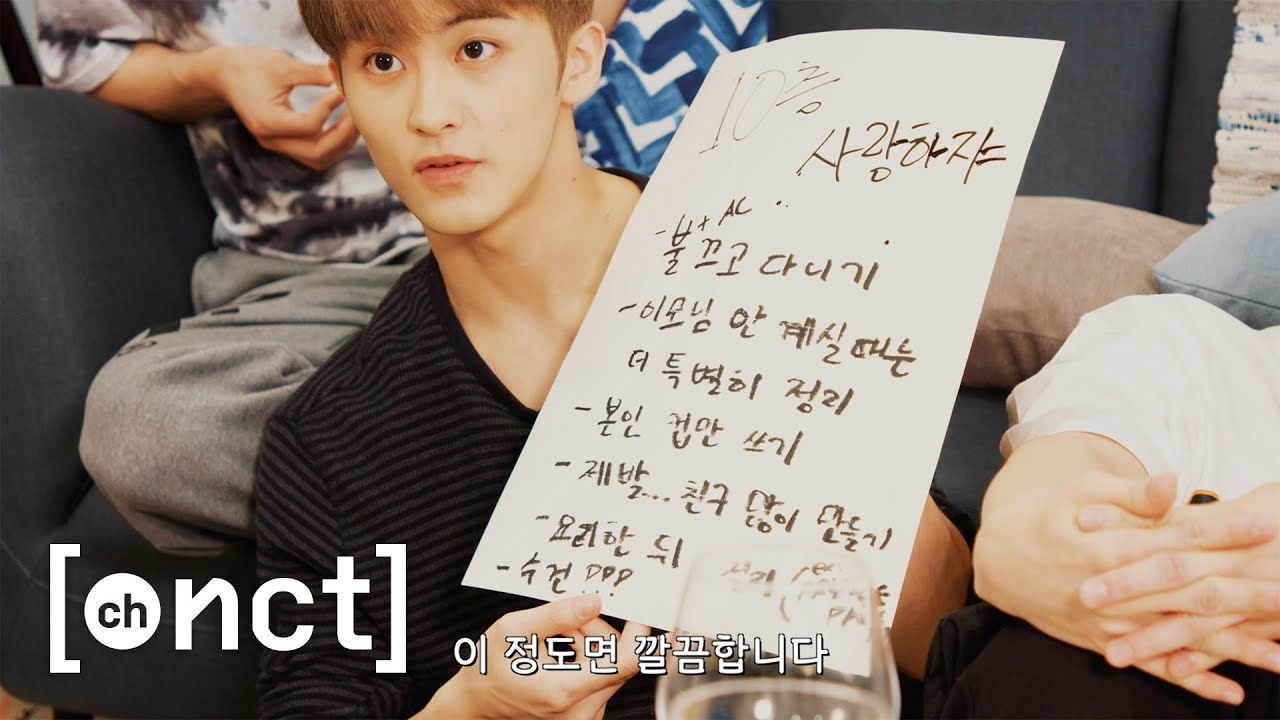 10층
사랑하자
- 불 + AC 끄고 다니기
- 이모님 안 계실때는
더 특별히 정리
- 본인 컵만 쓰기
- 제발... 친구 많이 만들기
- 요리한 뒤
- 수건 ???
[ch nct]
이 정도면 깔끔합니다